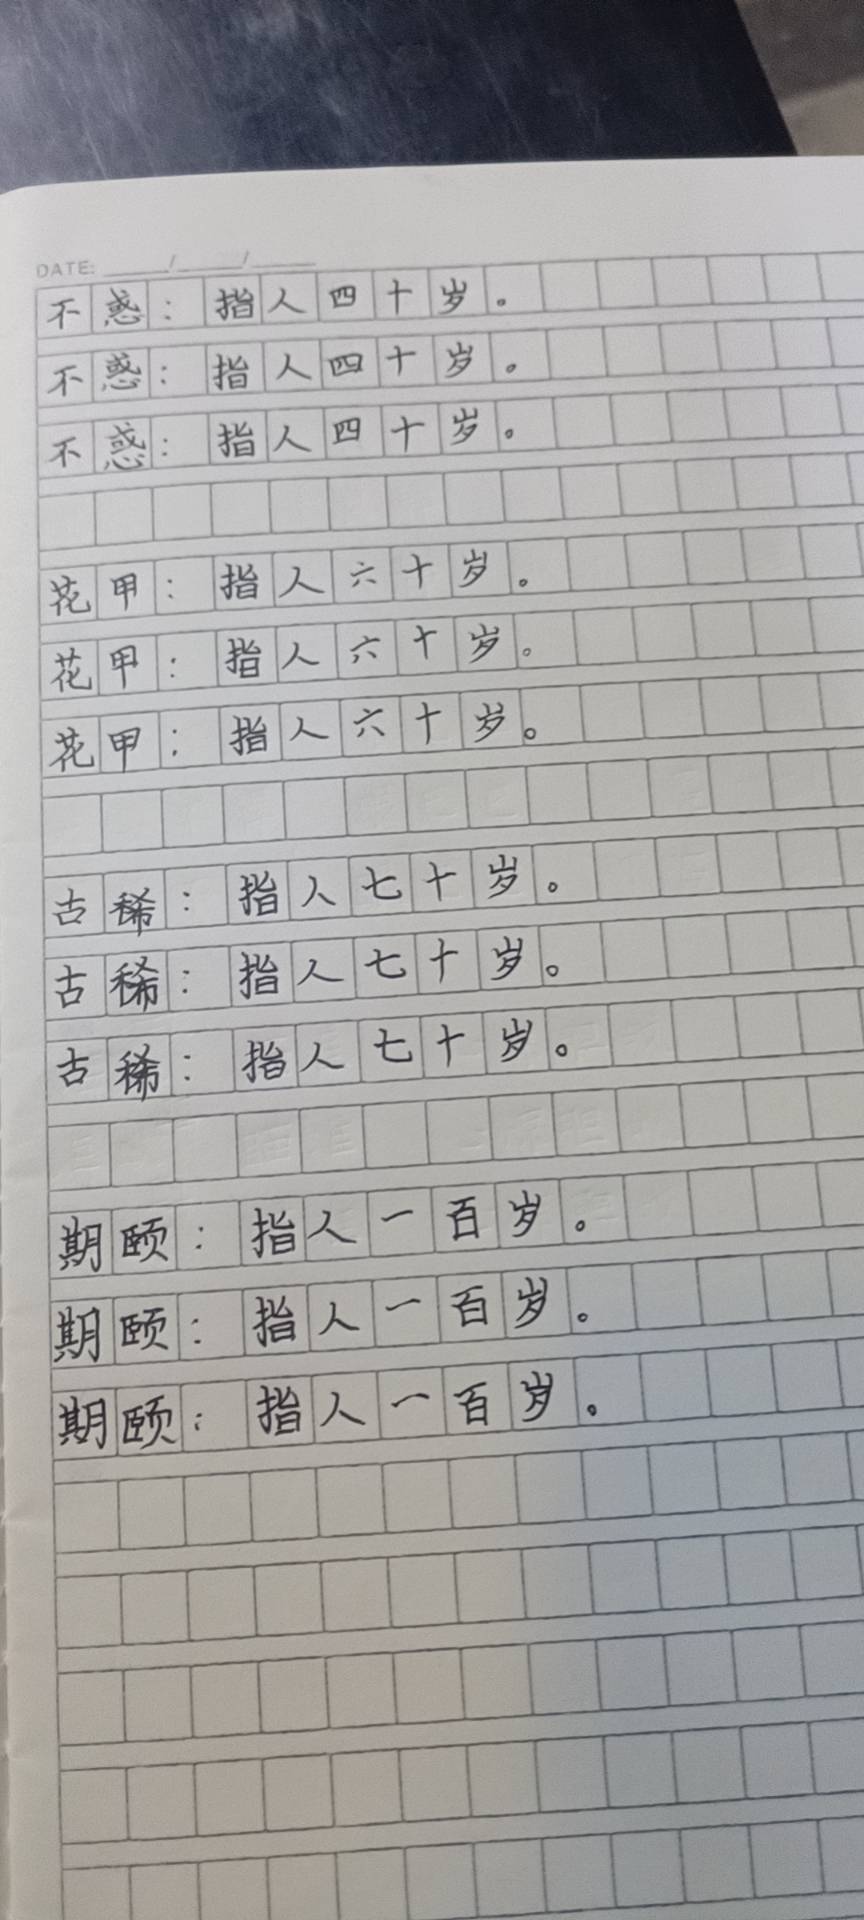 DATE: ____/____/____
不惑：指人四十岁。
不惑：指人四十岁。
不惑：指人四十岁。
花甲：指人六十岁。
花甲：指人六十岁。
花甲：指人六十岁。
古稀：指人七十岁。
古稀：指人七十岁。
古稀：指人七十岁。
期颐：指人一百岁。
期颐：指人一百岁。
期颐：指人一百岁。